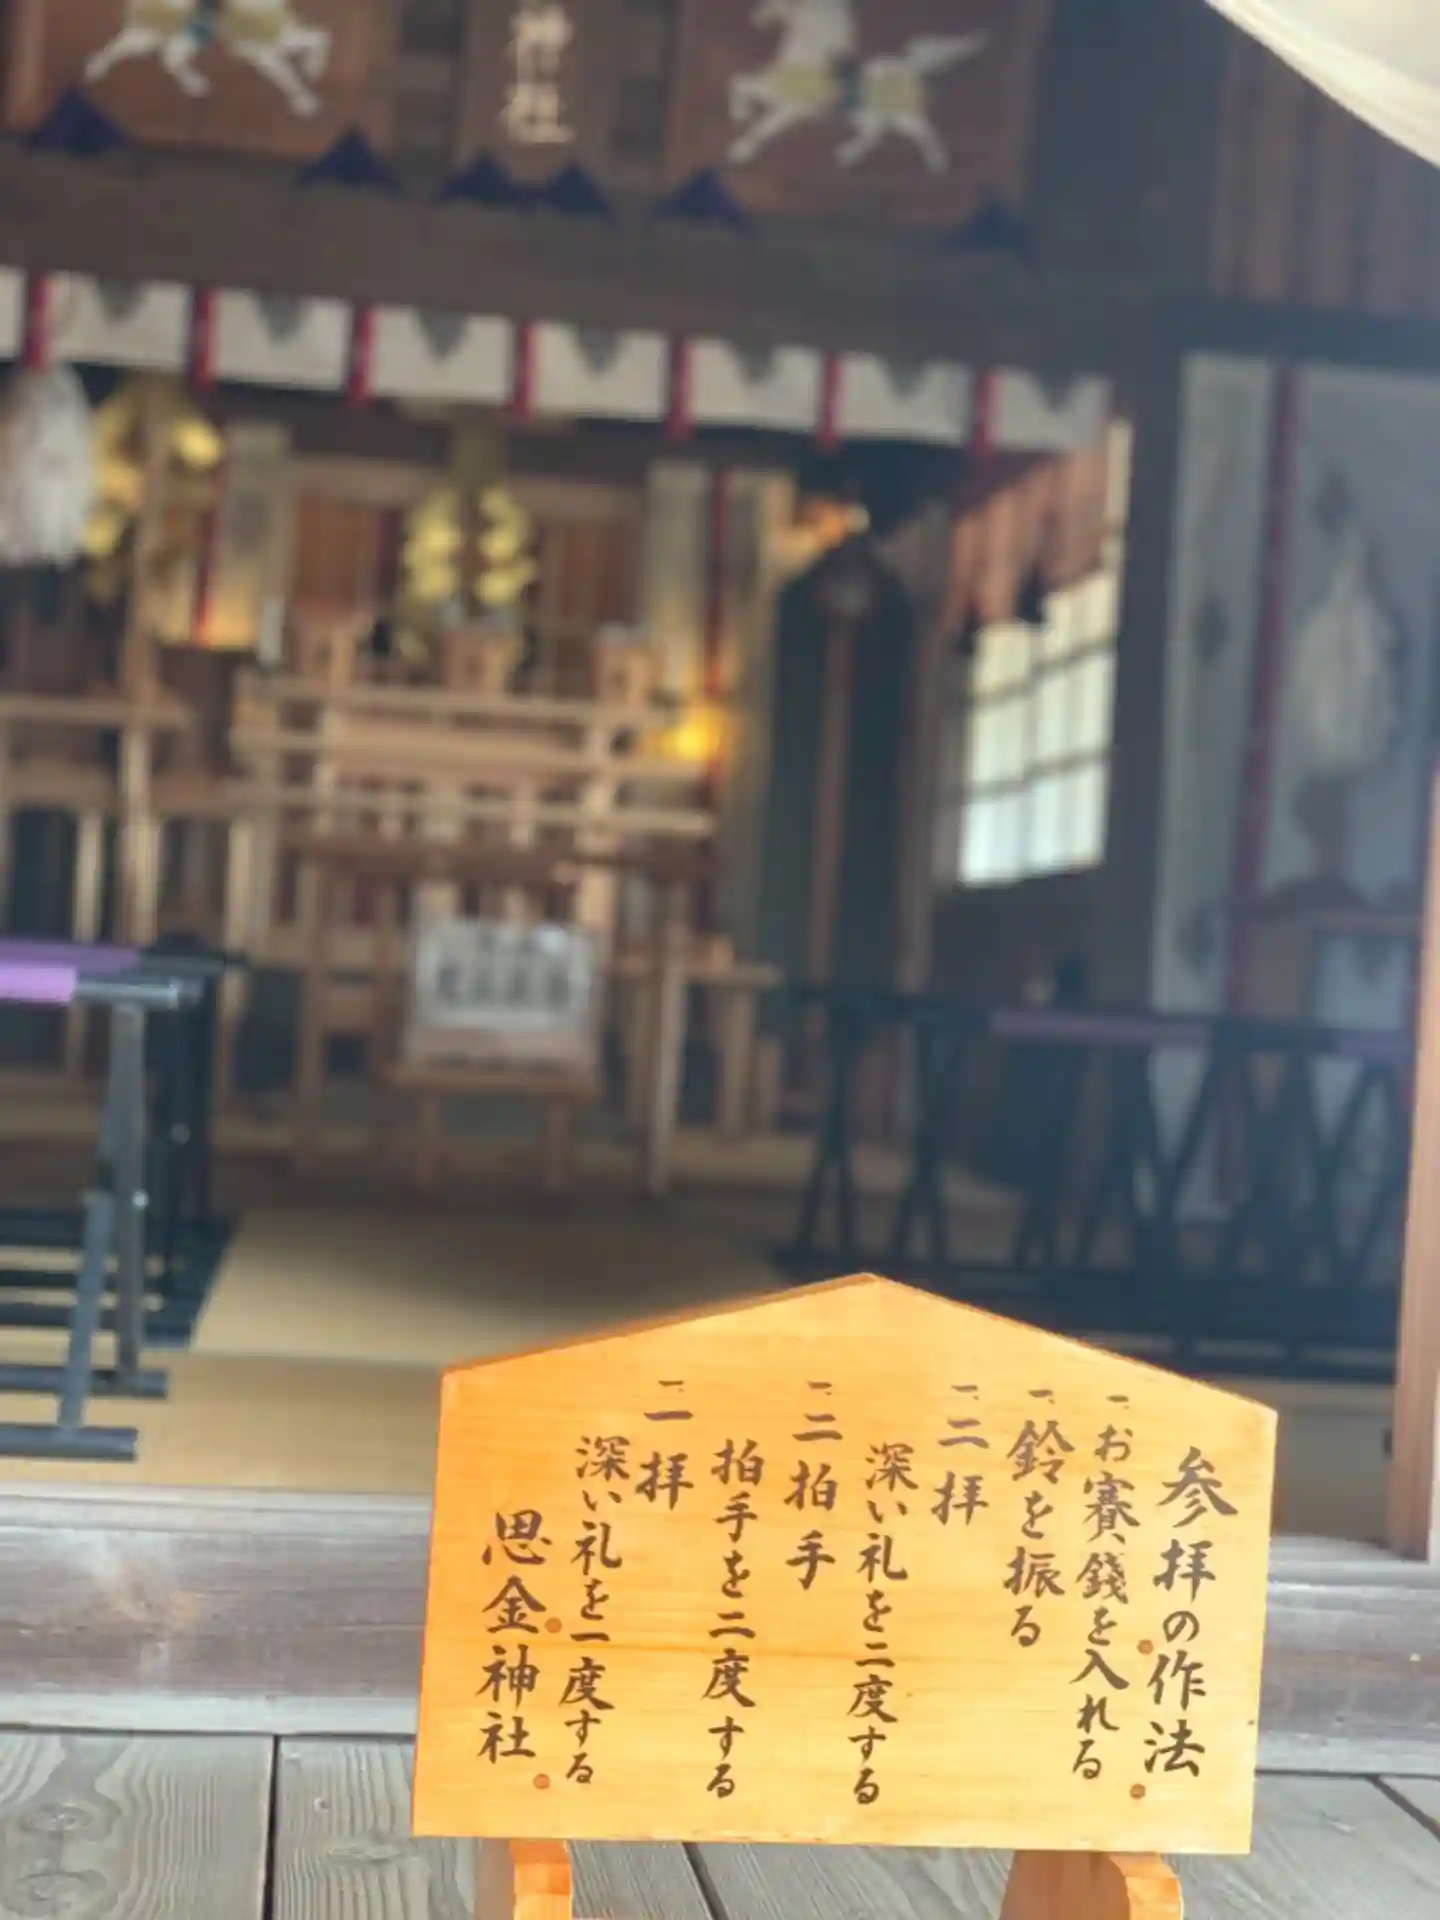 神社
参拝の作法
一、お賽銭を入れる
一、鈴を振る
一、二拝
深い礼を二度する
一、二拍手
拍手を二度する
一、一拝
深い礼を一度する
思金神社